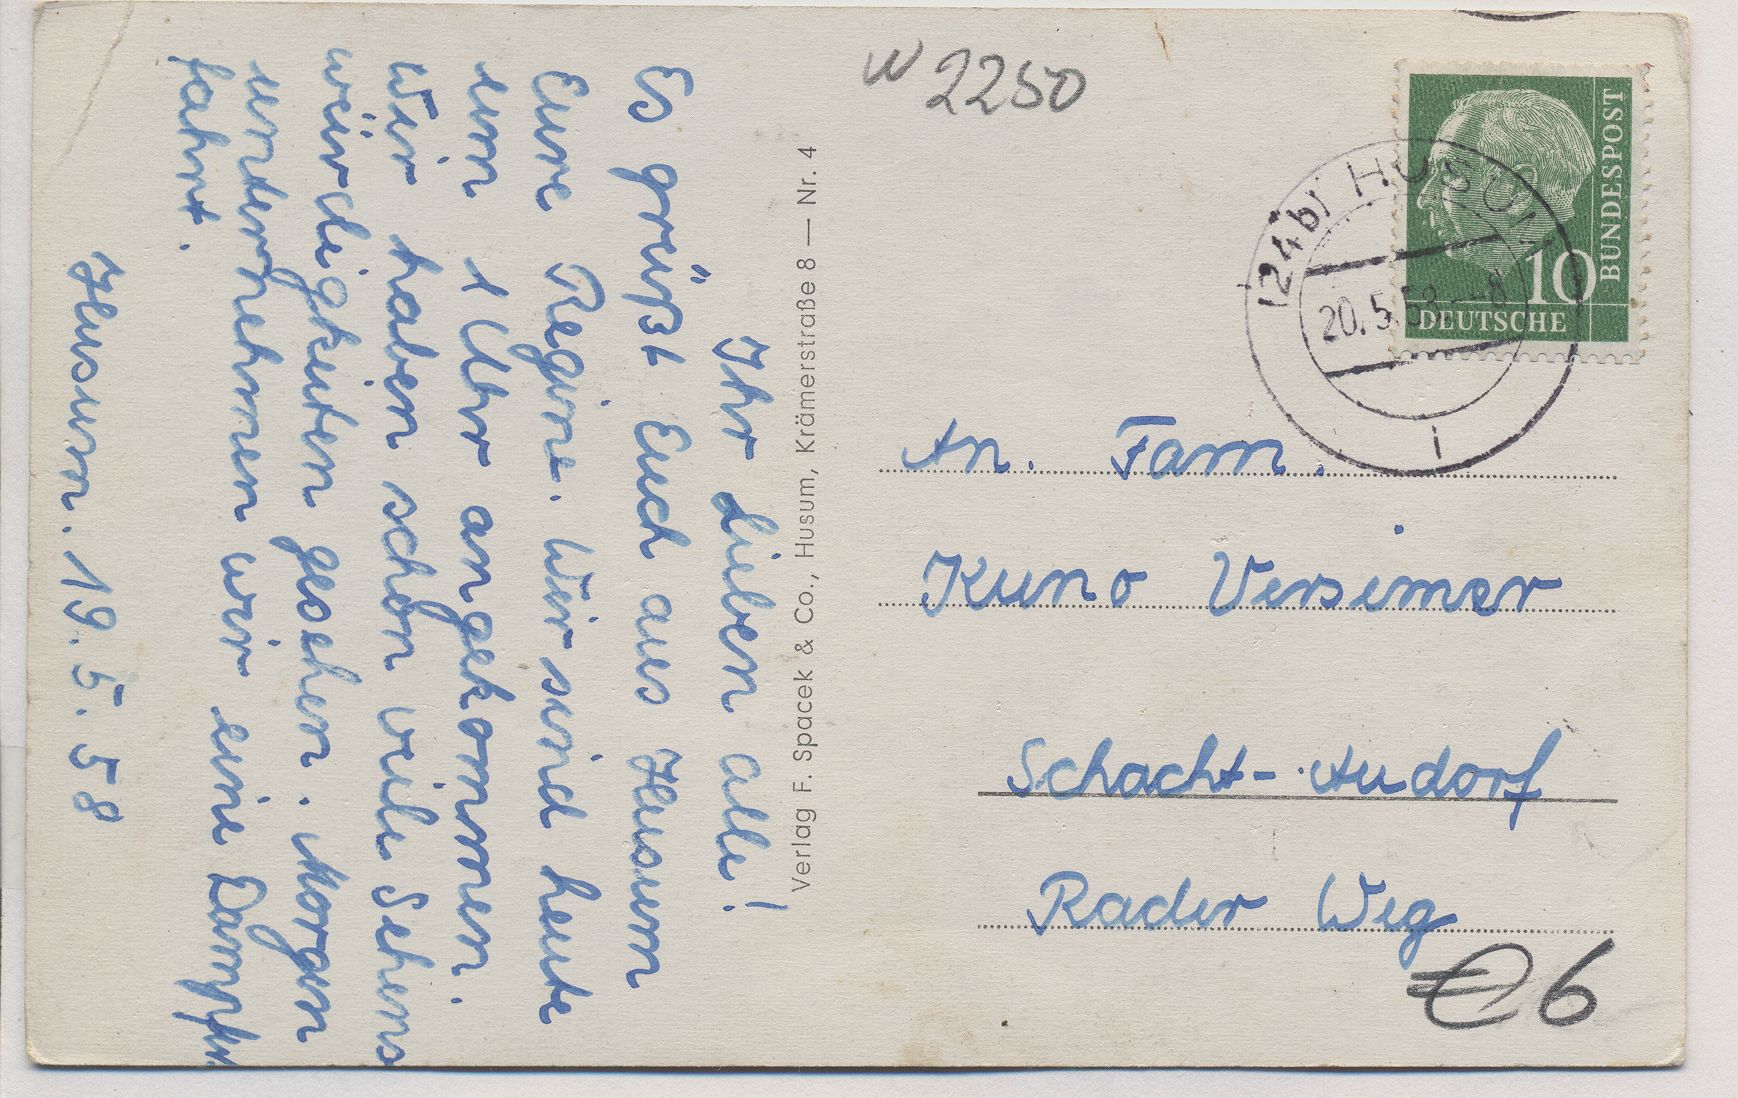 Husum. 19.5.58
Ihr Lieben alle!
Es grüßt Euch aus Husum
Eure Regine. Wir sind heute
um 1 Uhr angekommen.
Wir haben schon viele Sehens
würdigkeiten gesehen. Morgen
unternehmen wir eine Dampfer
fahrt.
Verlag F. Spacek & Co., Husum, Krämerstraße 8 — Nr. 4
W 2250
BUNDESPOST
10
DEUTSCHE
(24b) HUSUM
20.5.58.--8
i
An. Fam.
Kuno
Schacht-Audorf
Rader Weg
€6